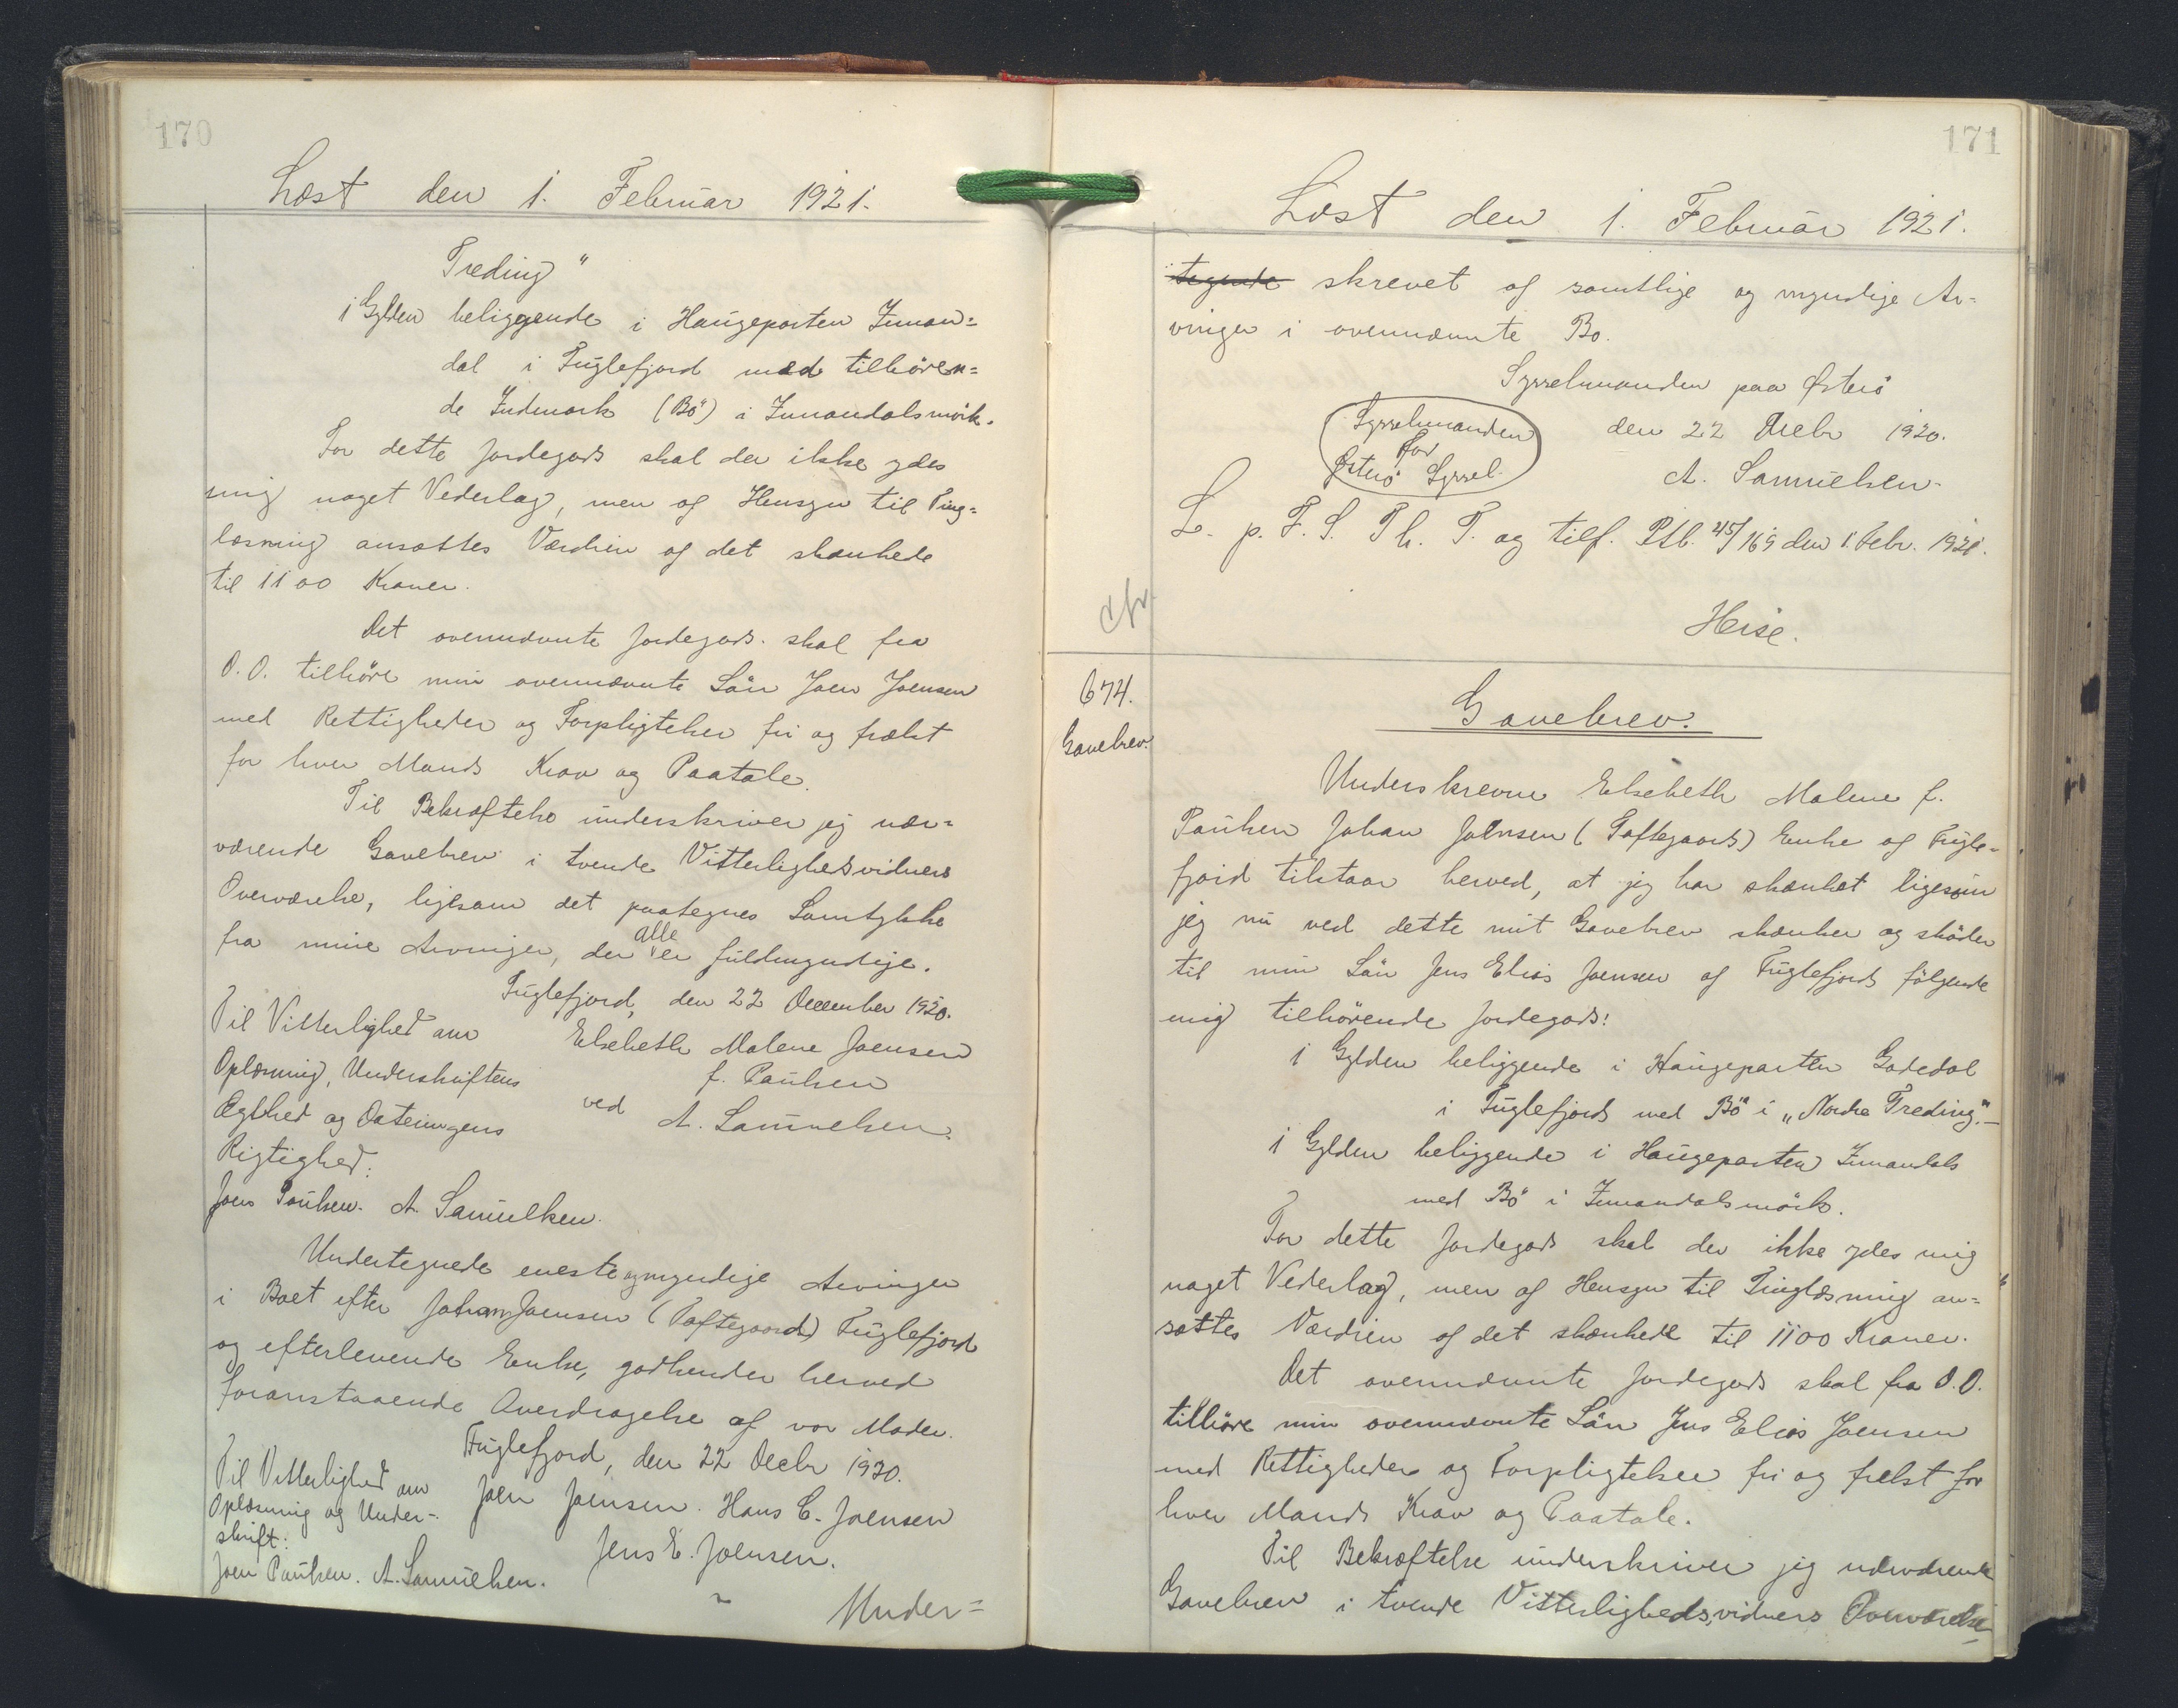 170
Læst den 1. Februar 1921.
Treding"
1 Gylden beliggende i Haugeparten Innan=
dal i Fuglefjord med tilhören=
de Indmark (Bö) i Innandalsmörk.
For dette Jordegods skal der ikke ydes
mig noget Vederlag, men af Hensyn til Ting=
læsning ansættes Værdien af det skænkede
til 1100 Kroner.
Det ovennævnte Jordegods skal fra
D.D. tilhöre min ovennævnte Sön Joen Joensen
med Rettigheder og Forpligtelser fri og frælst
for hver Mands Krav og Paatale.
Til Bekræftelse underskriver jeg nær=
værende Gavebrev i tvende Vitterlighedsvidners
Overværelse, ligesom det paategnes Samtykke
fra mine Arvinger, der alle er fuldmyndige.
Fuglefjord, den 22 December 1920.
Til Vitterlighed om
Oplæsning, Underskriftens
Ægthed og Dateringens
Rigtighed:
Joen Poulsen. A. Samuelsen.
Elsebeth Malene Joensen
f. Paulsen
ved A. Samuelsen.
Undertegnede eneste og myndige Arvinger
i Boet efter Johan Joensen (Toftegaard) Fuglefjord
og efterlevende Enke, godkender herved
foranstaaende Overdragelse af vor Moder.
Fuglefjord, den 22 Decbr 1920.
Til Vitterlighed om
Oplæsning og Under-
skrift:
Joen Paulsen. A. Samuelsen.
Joen Joensen. Hans C. Joensen
Jens E. Joensen.
Under=
171
Læst den 1. Februar 1921.
tegnede skrevet af samtlige og myndige Ar=
vinger i ovennævnte Bo.
Sysselmanden paa Österö
den 22 Decbr 1920.
A. Samuelsen.
Sysselmanden
for
Österö Syssel.
L. p. F. S. Th. T. og tilf. Ptb. 45/169 den 1. Febr. 1921.
Heise.
cfr.
674.
Gavebrev.
Gavebrev.
Underskrevne Elsebeth Malene f.
Paulsen Johan Joensen (Toftegaards) Enke af Fugle=
fjord tilstaar herved, at jeg har skænket ligesom
jeg nu ved dette mit Gavebrev skænker og sköder
til min Sön Jens Elias Joensen af Fuglefjord fölgende
mig tilhörende Jordegods:
1 Gylden beliggende i Haugeparten Gardedal
i Fuglefjord med Bö i „Nordre Treding".
1 Gylden beliggende i Haugeparten Innandals
med Bö i Innandalsmörk.
For dette Jordegods skal der ikke ydes mig
noget Vederlag, men af Hensyn til Tinglæsning an=
sættes Værdien af det skænkede til 1100 Kroner.
Det ovennævnte Jordegods skal fra D.D.
tilhöre min ovennævnte Sön Jens Elias Joensen
med Rettigheder og Forpligtelser fri og frelst for
hver Mands Krav og Paatale.
Til Bekræftelse underskriver jeg nærværende
Gavebrev i tvende Vitterlighedsvidners Overværelse,